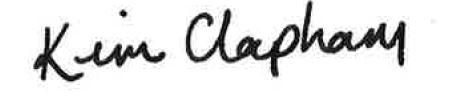 Kim Clapham